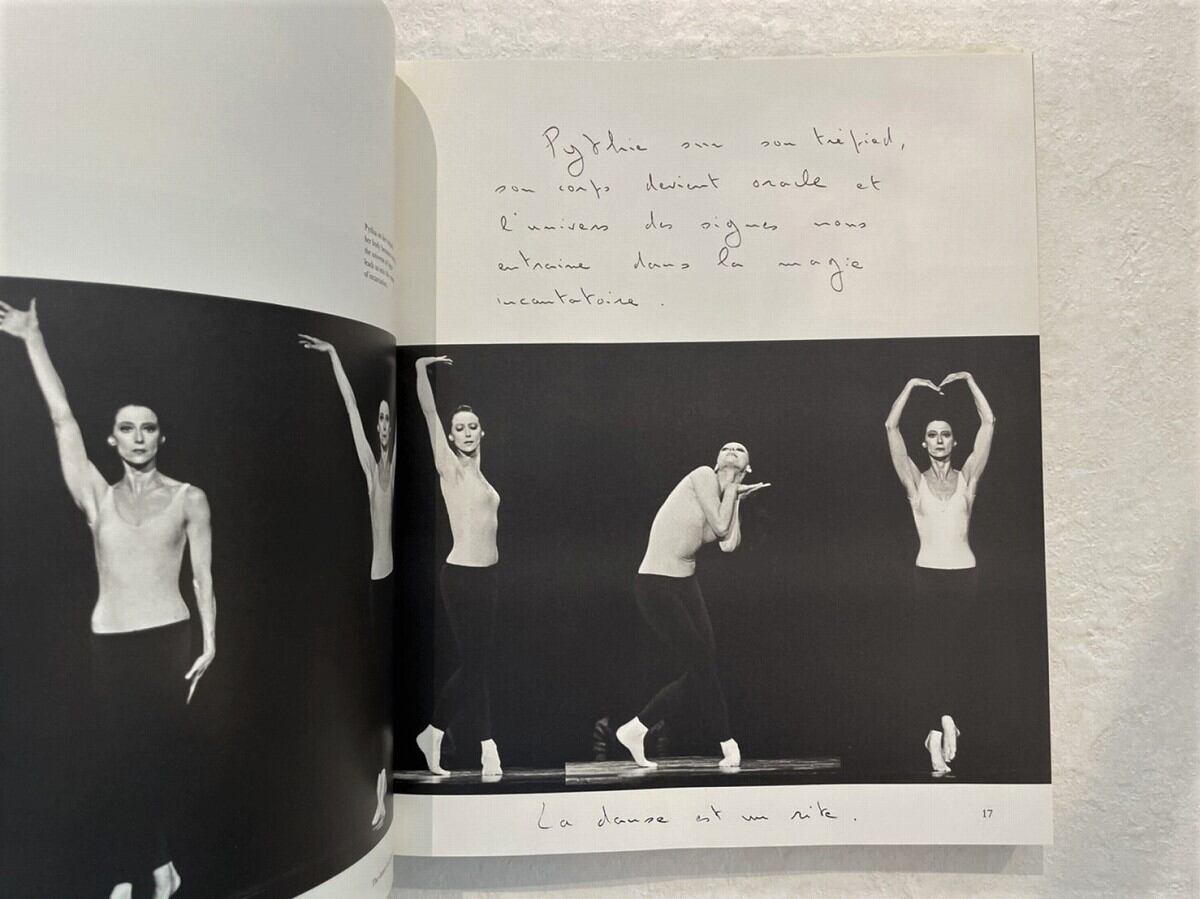 Pythia on her
her body becomes
the universe of
leads us into the
of incantation.
Pythie sur son trépied,
son corps devient oracle et
l'univers des signes nous
entraine dans la magie
incantatoire.
La danse est un rite.
17